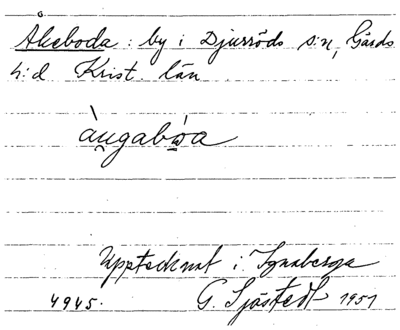 Åkeboda: by i Djurröds s:n, Gärds
h:d Krist. län
àu̯gabóa
Upptecknat i Ignaberga
4945. G. Sjöstedt 1951